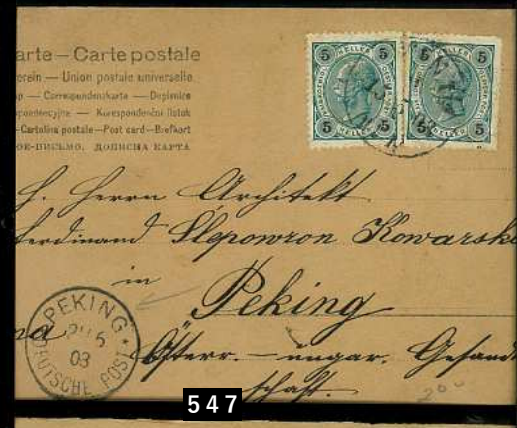 arte — Carte postale
erein — Union postale universelle
ap — Correspondenzkarte — Dopisnice
pondencyjna — Korespondenční lístek
— Cartolina postale — Post card — Brefkort
ОЕ-ПИСЬМО. ДОПИСНА КАРТА
5 HELLER 5
5 HELLER 5
5 HELLER 5
5 5
H. Herrn Architekt
Ferdinand Slepowron Kowarsk
in
Peking
Österr. - ungar. Gesand
schaft.
PEKING
5
03
DEUTSCHE POST
547